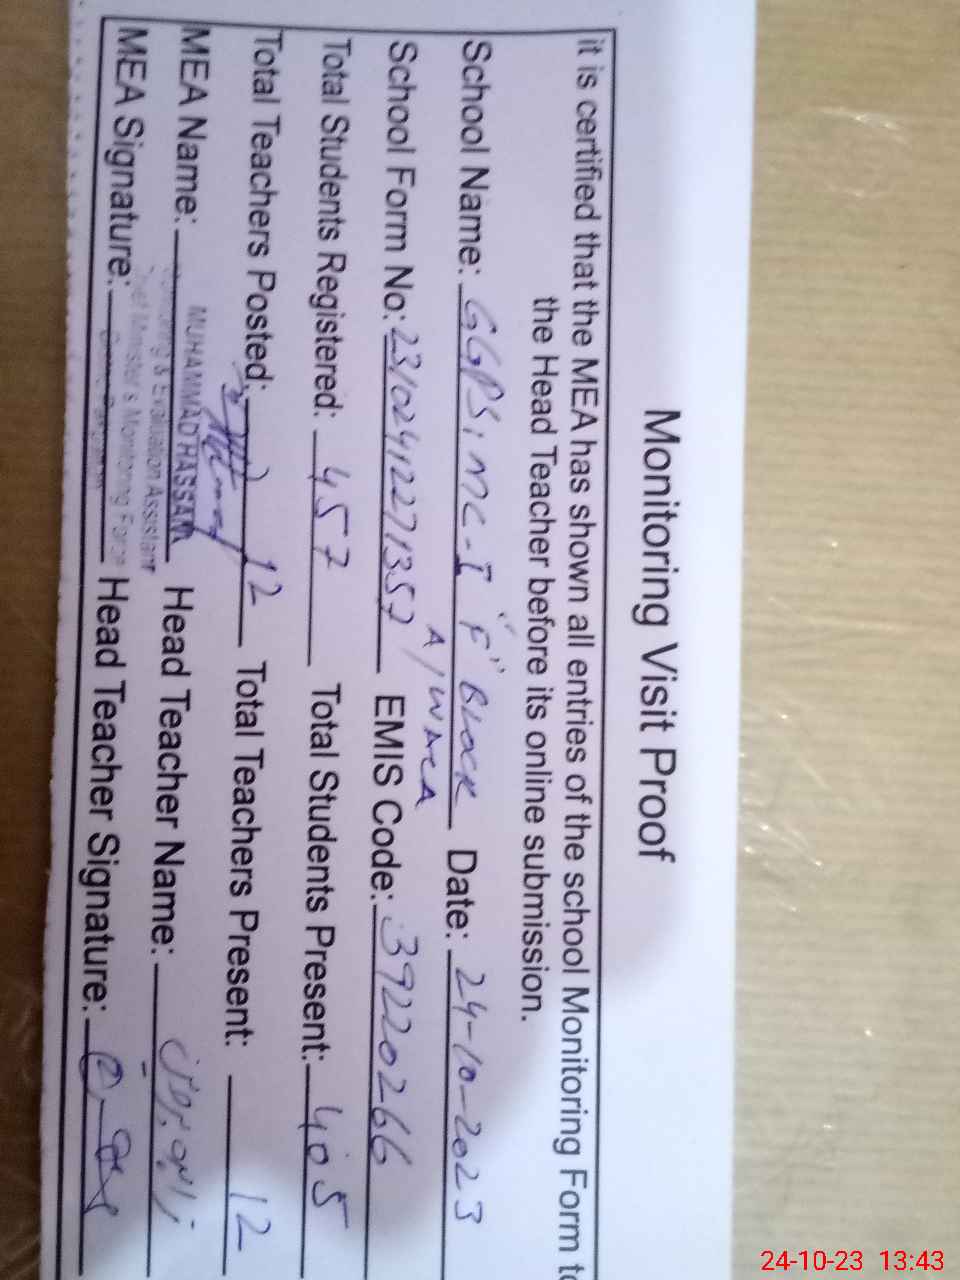 Monitoring Visit Proof
it is certified that the MEA has shown all entries of the school Monitoring Form to
the Head Teacher before its online submission.
School Name: GGPS, MC-I "F" BLOCK Date: 24-10-2023
A/WALA
School Form No: 231024122771357 EMIS Code: 39220266
Total Students Registered: 457 Total Students Present: 405
Total Teachers Posted: 12 Total Teachers Present: 12
MEA Name: MUHAMMAD HASSAN Head Teacher Name:
Monitoring & Evaluation Assistant
MEA Signature: Chief Minister's Monitoring Force Head Teacher Signature:
24-10-23 13:43